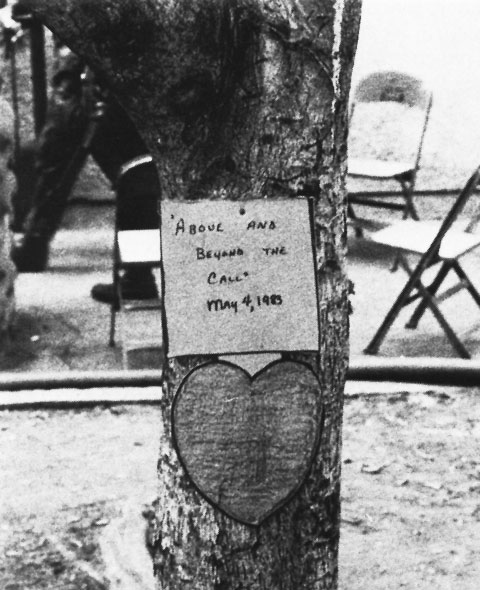 "ABOVE AND
BEYOND THE
CALL"
MAY 4, 1983